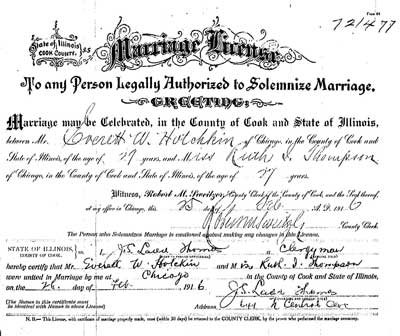 721477
State of Illinois,
COOK COUNTY. SS
Marriage License
To any Person Legally Authorized to Solemnize Marriage,
GREETING:
Marriage may be Celebrated, in the County of Cook and State of Illinois,
between Mr. Everett W. Hotchkin of Chicago, in the County of Cook and
State of Illinois, of the age of 29 years, and Miss Ruth I. Thompson
of Chicago, in the County of Cook and State of Illinois, of the age of 27 years.
Witness, Robert M. Sweitzer, County Clerk of the County of Cook, and the Seal thereof,
at my office in Chicago, this 25 day of Feb A.D. 1916
Robert M Sweitzer County Clerk.
The Person who Solemnizes Marriage is cautioned against making any changes in this License.
STATE OF ILLINOIS,
County of Cook. I, Thomas Clergyman
hereby certify that Mr. Everett W. Hotckin and M iss Ruth I. Thompson
were united in Marriage by me at Chicago in the County of Cook and State of Illinois,
on the 26 day of Feb. 1916
(Name to this Certificate must
be identical with Name in above License)
Address 644 N Central Ave
N. B.—This License, with certificate of marriage properly made, must (within 30 days) be returned to the COUNTY CLERK, by the person who performed the marriage ceremony.